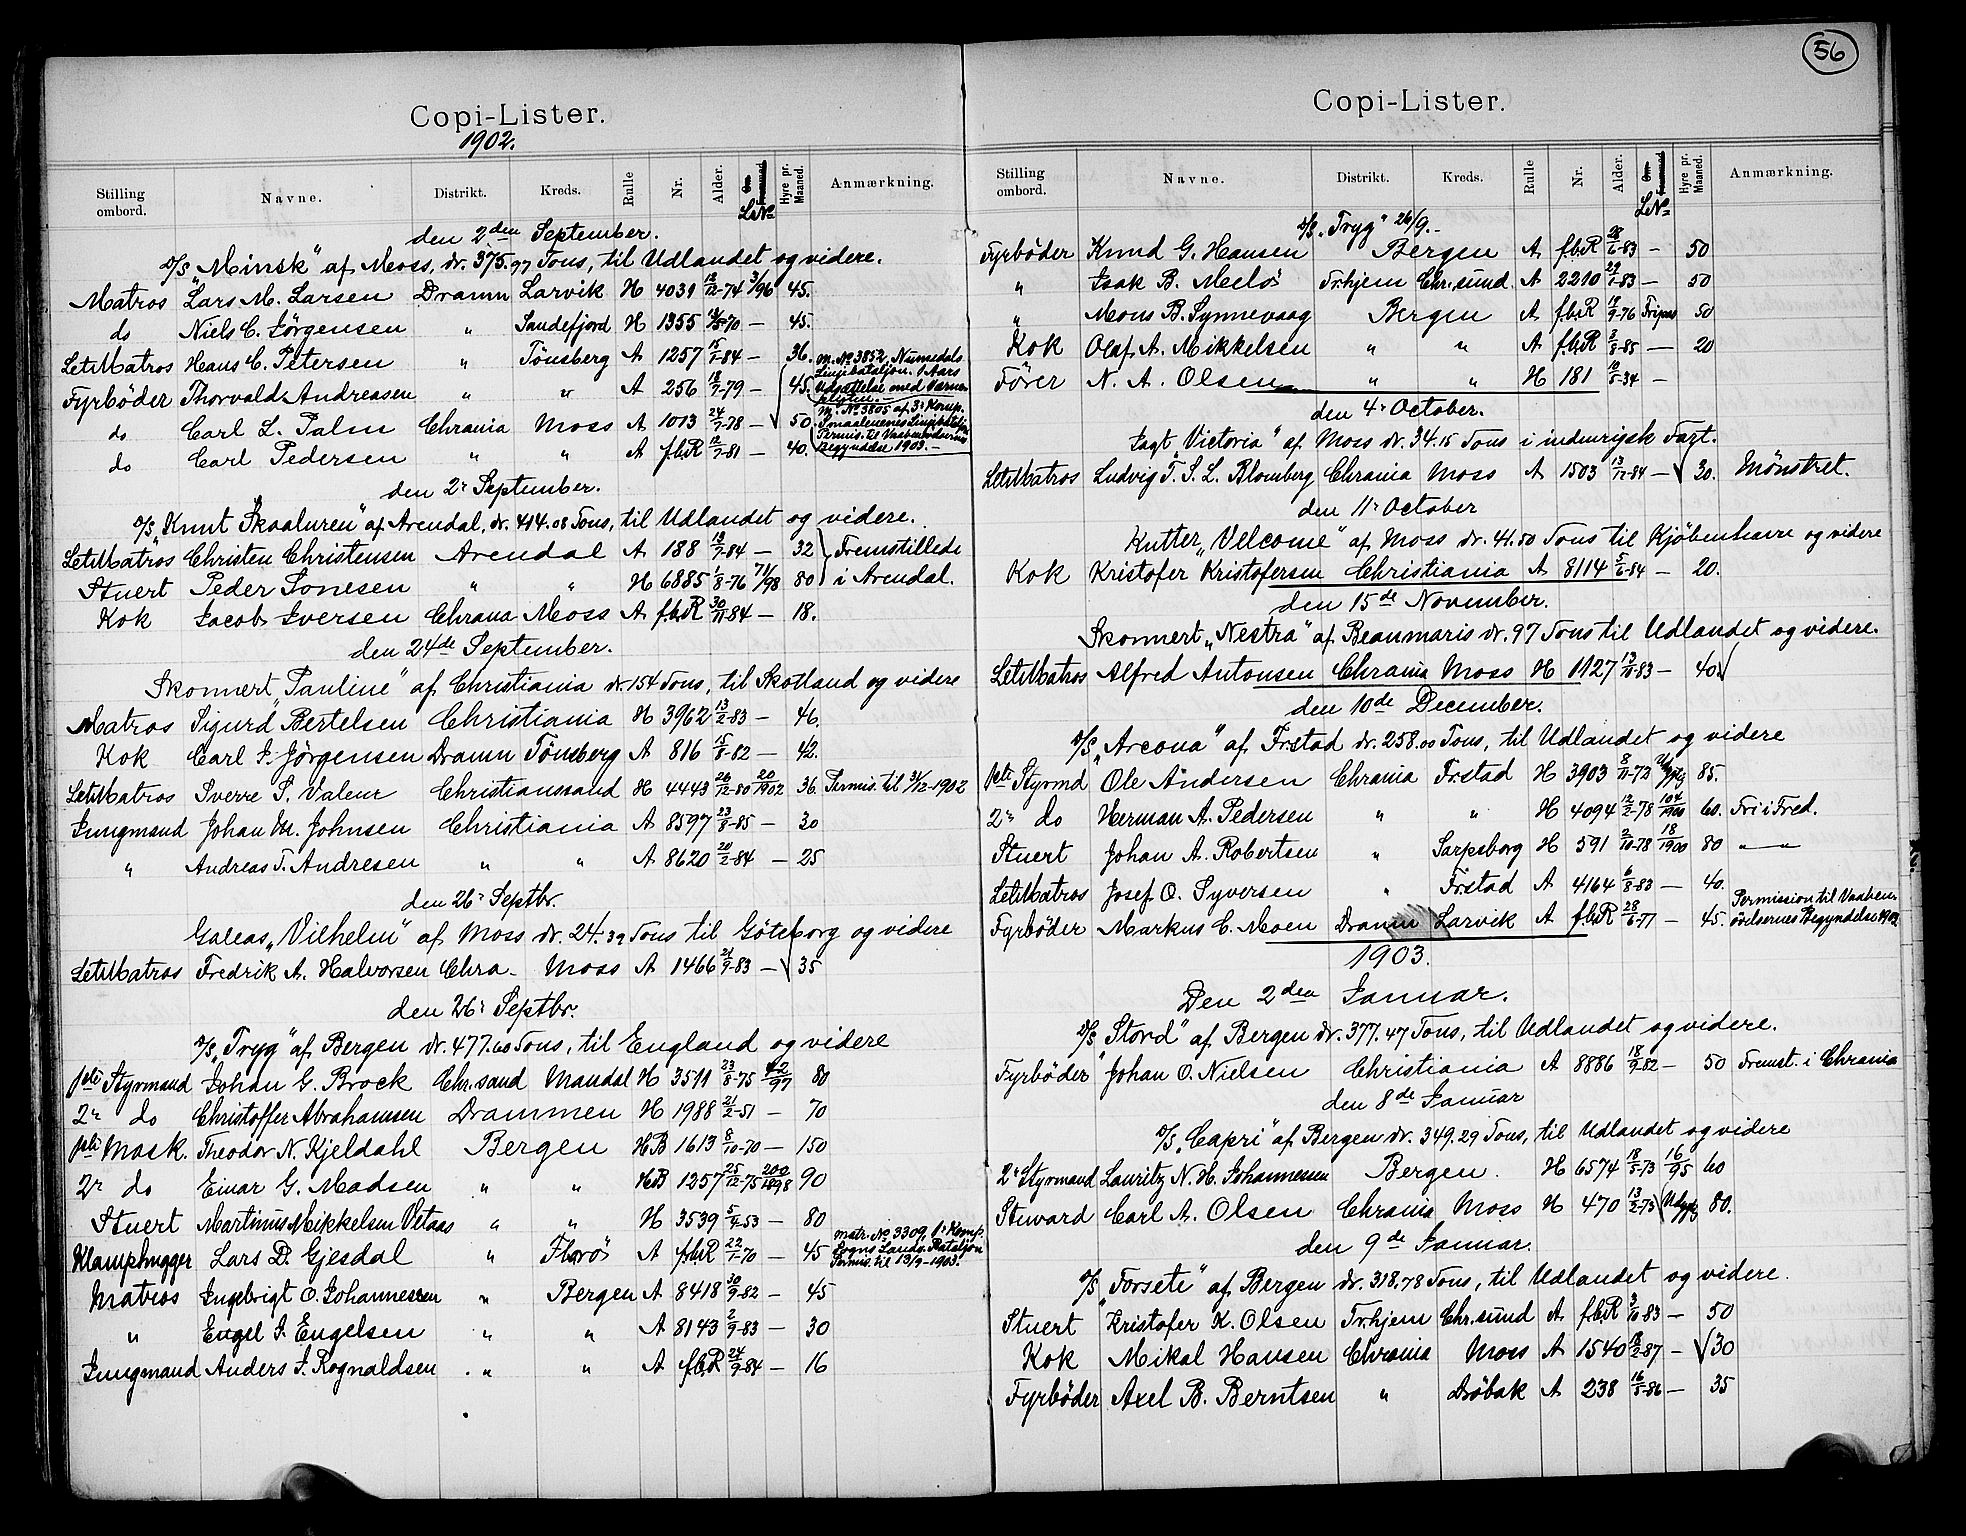 Copi-Lister.
1902.
Stilling ombord. Navne. Distrikt. Kreds. Rulle Nr. Alder. LNo Hyre pr. Maaned. Anmærkning.
den 2den September.
D/S „Minsk" af Moss, dr. 375.97 Tons, til Udlandet og videre.
Matros Lars M. Larsen Dramn Larvik H 4039 12/12-74 3/96 45.
do Niels C. Jörgensen " Sandefjord H 1355 -70 — 45.
LetMatros Hans C. Petersen " Tønsberg A 1257 15/1-84 — 36. m. No 3852, Numedals
Linjebataljon. 1 Aars
Fyrbøder Thorvald Andreasen " " A 256 18/7-79 — 45. Udsættelse med Værne-
pligten.—
do Carl L. Palm Chrania Moss A 1013 24/7-78 — 50. m. No 3805 af 3' Komp.
Smaalenenes Linjebataljon
Permis. til Vaabenøvelsernes
do Carl Pedersen " " A f.b.R 12/7-81 — 40. Begyndelse 1903.—
den 2' September.
D/S „Knut Skaaluren" af Arendal, dr. 414.08 Tons, til Udlandet og videre.
LetMatros Christen Christensen Arendal A 188 19/7-84 — 32 Fremstillede
Stuert Peder Tonesen " " H 6885 1/8-76 71/98 80 i Arendal.
Kok Jacob Iversen Chrana Moss A f.b.R 30/11-84 — 18.
den 24de September.
Skonnert „Pauline" af Christiania dr. 154 Tons, til Skotland og videre
Matros Sigurd Bertelsen Christiania H 3962 13/2-83 — 46.
Kok Carl J. Jørgensen Dramn Tönsberg A 816 15/8-82 — 42.
LetMatros Sverre S. Valeur Christianssand H 4443 26/12-80 20/1902 36. Permis. til 31/12-1902
Jungmand Johan M. Johnsen Christiania A 8597 23/8-85 — 30
" Andreas T. Andresen " " A 8620 20/2-84 — 25
den 26' Septbr.
Galeas „Vilhelm" af Moss dr. 24.39 Tons til Göteborg og videre
LetMatros Fredrik A. Halvorsen Chra. Moss A 1466 21/9-83 — 35
den 26' Septbr.
D/S „Tryg" af Bergen dr. 477.60 Tons, til England og videre
1ste Styrmand Johan G. Brock Chr.sand Mandal H 3511 23/8-75 42/97 80
2' do Christoffer Abrahamsen Drammen H 1988 21/2-51 — 70
1ste Mask. Theodor N. Kjeldahl Bergen HB 1613 8/10-70 — 150
2' do Einar G. Madsen " " HB 1257 25/12-75 200/1898 90
Stuert Martinus Mikkelsen Vetaas " " H 3539 5/4-53 — 80
Klamphugger Lars D. Gjesdal " Florö A f.b.R 22/1-70 — 45 mstr. No 3309, 1' Komp.
Sogns Landv. Bataljon
Permis. til 13/9-1903.
Matros Ingebrigt O. Johannessen " Bergen A 8418 30/9-82 — 45
" Engel J. Engelsen " " A 8143 2/9-83 — 30
Jungmand Anders J. Rognaldsen " " A f.b.R 24/9-84 — 16
56
Copi-Lister.
Stilling ombord. Navne. Distrikt. Kreds. Rulle Nr. Alder. LNo Hyre pr. Maaned. Anmærkning.
D/S „Tryg" 26/9.
Fyrbøder Knud G. Hansen Bergen A f.b.R 28/6-83 — 50
" Isak B. Melös Tr.hjem Chr.sund. A 2210 29/1-83 — 50
" Mons B. Synnevaag Bergen A f.b.R 19/9-76 Fripas 50
Kok Olaf A. Mikkelsen " " A f.b.R 3/8-85 — 20
Förer N. A. Olsen " " H 181 10/5-34 —
den 4' October.
Jagt „Victoria" af Moss dr. 34.15 Tons i indenrigsk Fart.
LetMatros Ludvig T. S. L. Blomberg Chrania Moss A 1503 13/12-84 — 30. Mönstret.
den 11' October
Kutter „Velcome" af Moss dr. 41.50 Tons til Kjöbenhavn og videre
Kok Kristofer Kristofersen Christiania A 8114 5/6-84 — 20.
den 15de November.
Skonnert „Nestra" af Beaumaris dr. 97 Tons til Udlandet og videre.
LetMatros Alfred Antonsen Chrania Moss H 1127 -83 — 40.
den 10de December.
D/S „Arcona" af Frstad dr. 258.00 Tons, til Udlandet og videre
1ste Styrmd Ole Andersen Chrania Frstad H 3903 8/11-72 85.
2' do Herman A. Pedersen " " H 4094 12/2-78 104/1900 60. Fri i Fred.
Stuert Johan A. Robertsen " Sarpsborg H 591 2/10-78 18/1900 80 " "
LetMatros Josef O. Syversen " Frstad A 4164 6/8-83 — 40.
Fyrbøder Markus C. Moen Dramn Larvik A f.b.R 28/6-77 — 45. Permission til Vaaben-
övelsernes Begyndelse 1903.
1903.
Den 2den Januar.
D/S „Stord" af Bergen dr. 377.47 Tons, til Udlandet og videre.
Fyrbøder Johan O. Nielsen Christiania A 8886 18/9-82 — 50 Fremst. i Chrania
den 8de Januar
D/S „Capri" af Bergen dr. 349.29 Tons, til Udlandet og videre
2' Styrmand Lauritz N. H. Johannessen Bergen. H 6574 18/5-73 16/95 60
Stuward Carl A. Olsen Chrania Moss H 470 13/2-73 80.
den 9de Januar.
D/S „Forsete" af Bergen dr. 318.78 Tons, til Udlandet og videre.
Stuert Kristofer K. Olsen Tr.hjem Chr.sund A f.b.R 3/10-83 — 50
Kok Mikal Hansen Chrania Moss A 1540 18/2-87 — 30
Fyrbøder Axel B. Berntsen " Dröbak A 238 16/5-86 — 35